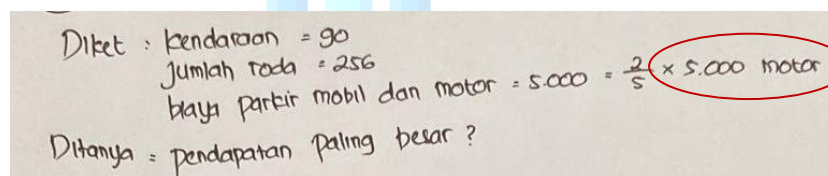 Diket : kendaraan = 90
Jumlah roda = 256
biaya parkir mobil dan motor = 5.000 = 2/5 x 5.000 motor
Ditanya = pendapatan paling besar ?